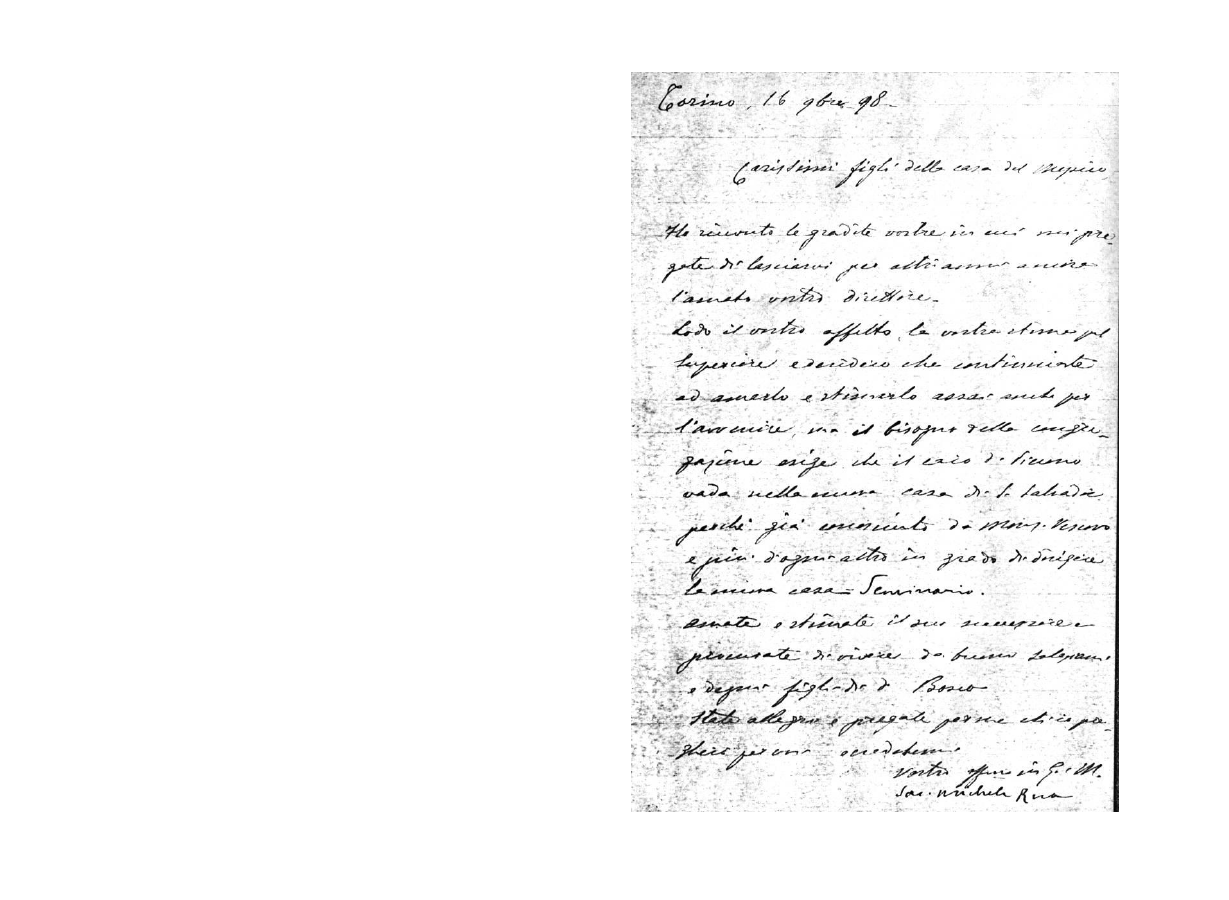 Torino, 16 9bre 98-
Carissimi figli della casa del Messico,
Ho ricevuto le gradite vostre in cui mi pre-
gate di lasciarvi per altri anni ancora
l'amato vostro direttore.
Lodo il vostro affetto, la vostra stima pel
Superiore e desidero che continuiate
ad amarlo e stimarlo assai anche per
l'avvenire, ma il bisogno della congre-
gazione esige che il caro D. Piccono
vada nella nuova casa di S. Salvador
perchè già conosciuto da Mons. Vescovo
e più d'ogni altro in grado di dirigere
la nuova casa Seminario.
amate e stimate il suo successore e
procurate di vivere da buoni salesiani
e degni figli di D. Bosco
State allegri e pregate per me che io pre-
gherò per voi e credetemi
Vostro affmo in G. e M.
Sac. Michele Rua